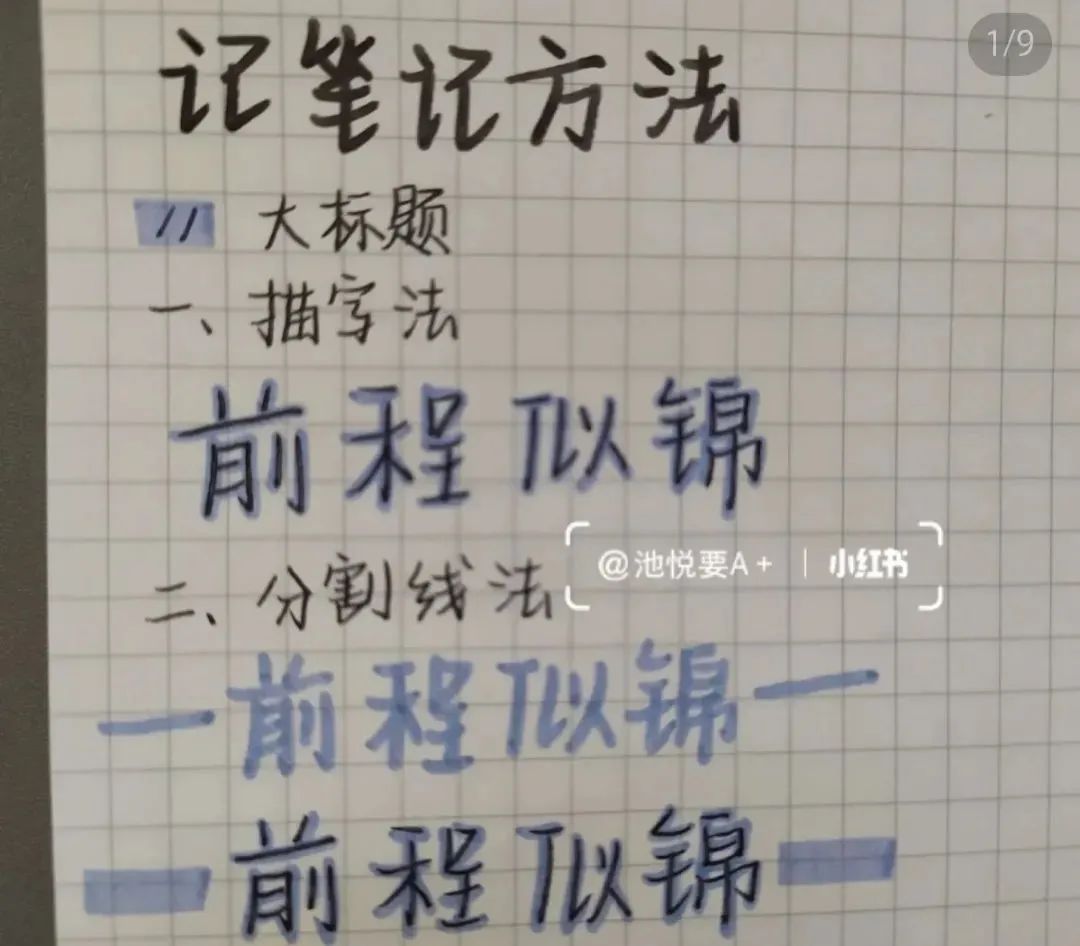 1/9
记笔记方法
// 大标题
一、描字法
前程似锦
二、分割线法
@池悦要A+ | 小红书
—前程似锦—
—前程似锦—